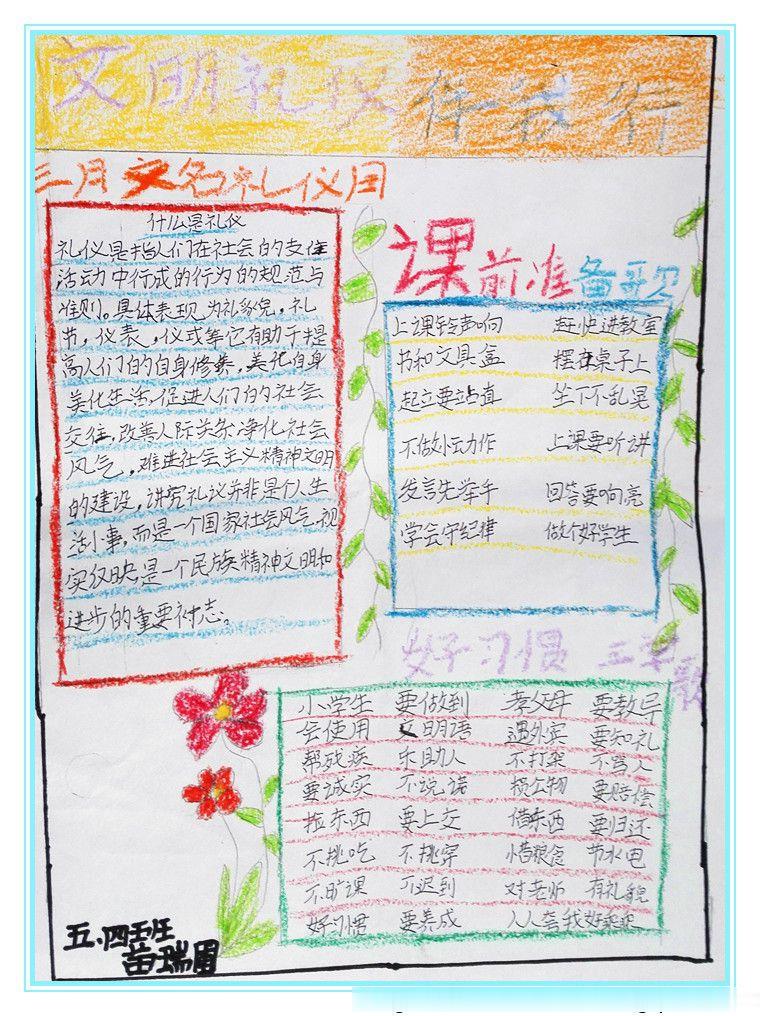 文明礼仪伴我行
三月文名礼仪周
什么是礼仪
礼仪是指人们在社会的交往
活动中行成的行为的规范与
准则。具体表现为礼貌，礼
节，仪表，仪式等它有助于提
高人们的自身修养，美化自身
美化生活，促进人们的社会
交往，改善人际关系净化社会
风气，推进社会主义精神文明
的建设，讲究礼议并非是个人生
活小事，而是一个国家社会风气，现
实仅映是一个民族精神文明和
进步的重要标志。
课前准备歌
上课铃声响 赶快进教室
书和文具盒 摆在桌子上
起立要站直 坐下不乱晃
不做小动作 上课要听讲
发言先举手 回答要响亮
学会守纪律 做个好学生
好习惯 三字歌
小学生 要做到 孝父母 要教导
会使用 文明语 遇外宾 要知礼
帮残疾 乐助人 不打架 不骂人
要诚实 不说谎 损公物 要赔偿
捡东西 要上交 借东西 要归还
不挑吃 不挑穿 惜粮食 节水电
不旷课 不迟到 对老师 有礼貌
好习惯 要养成 人人夸我好乖
五.四班
苗瑞